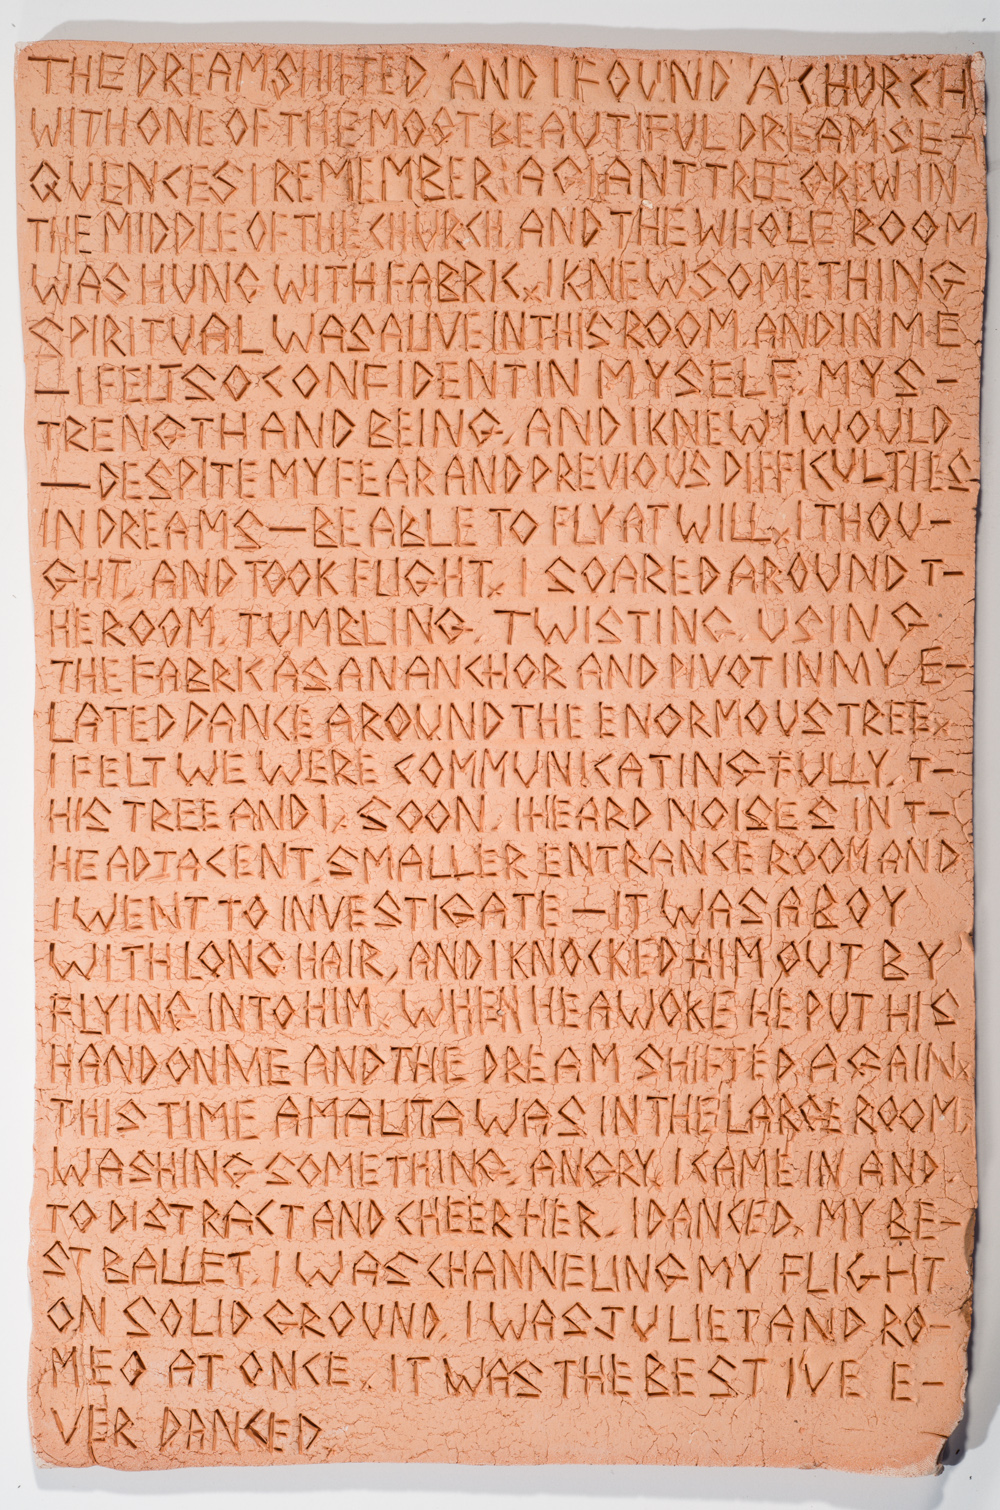 THE DREAM SHIFTED AND I FOUND A CHURCH
WITH ONE OF THE MOST BEAUTIFUL DREAM SE-
QUENCES I REMEMBER: A GIANT TREE GREW IN
THE MIDDLE OF THE CHURCH, AND THE WHOLE ROOM
WAS HUNG WITH FABRIC. I KNEW SOMETHING
SPIRITUAL WAS ALIVE IN THIS ROOM, AND IN ME
— I FELT SO CONFIDENT IN MYSELF, MY S-
TRENGTH AND BEING, AND I KNEW I WOULD
— DESPITE MY FEAR AND PREVIOUS DIFFICULTIES
IN DREAMS — BE ABLE TO FLY AT WILL. I THOU-
GHT, AND TOOK FLIGHT. I SOARED AROUND T-
HE ROOM, TUMBLING, TWISTING, USING
THE FABRIC AS AN ANCHOR AND PIVOT IN MY E-
LATED DANCE AROUND THE ENORMOUS TREE.
I FELT WE WERE COMMUNICATING FULLY, T-
HIS TREE AND I. SOON, I HEARD NOISES IN T-
HE ADJACENT, SMALLER ENTRANCE ROOM AND
I WENT TO INVESTIGATE — IT WAS A BOY
WITH LONG HAIR, AND I KNOCKED HIM OUT BY
FLYING INTO HIM. WHEN HE AWOKE HE PUT HIS
HAND ON ME AND THE DREAM SHIFTED AGAIN.
THIS TIME AMALITA WAS IN THE LARGE ROOM,
WASHING SOMETHING, ANGRY. I CAME IN AND
TO DISTRACT AND CHEER HER, I DANCED. MY BE-
ST BALLET. I WAS CHANNELING MY FLIGHT
ON SOLID GROUND. I WAS JULIET AND RO-
MEO AT ONCE. IT WAS THE BEST IVE E-
VER DANCED.